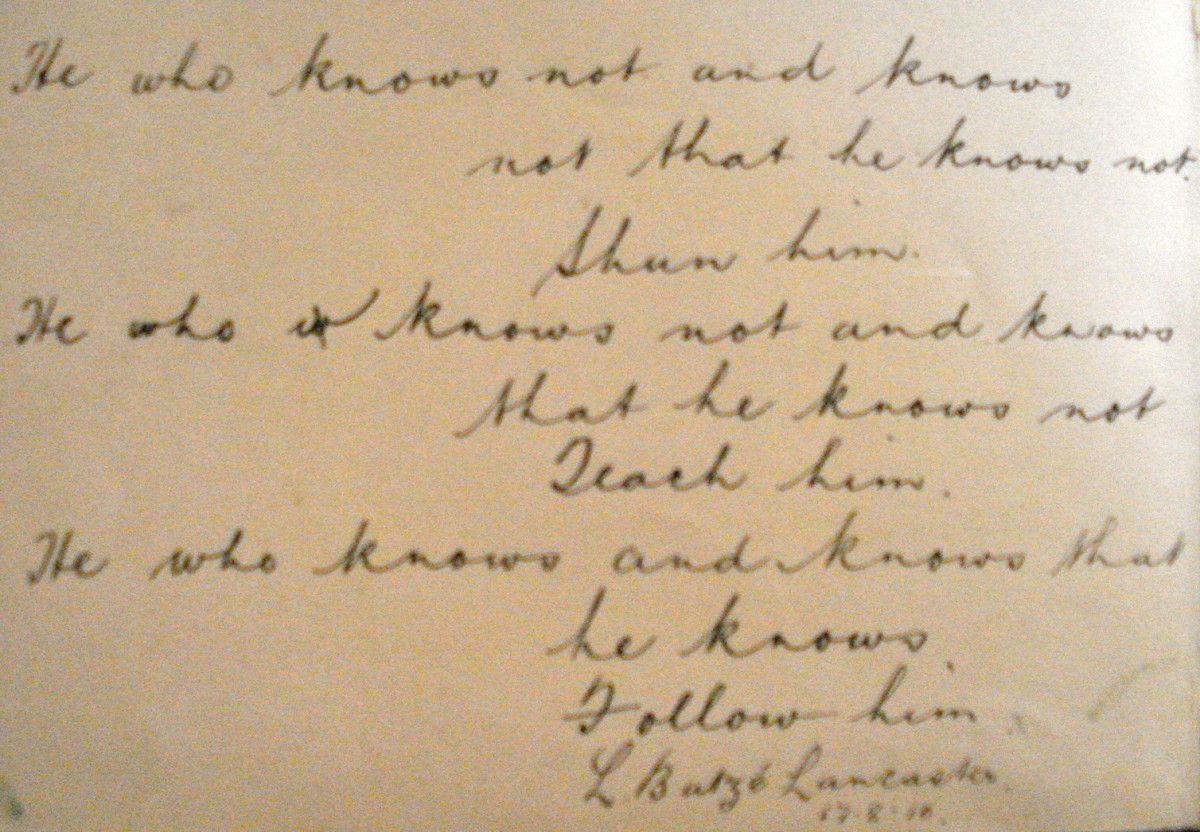 He who knows not and knows
not that he knows not.
Shun him.
He who knows not and knows
that he knows not
Teach him.
He who knows and knows that
he knows
Follow him
L Batzé Lancaster.
17-8-10.